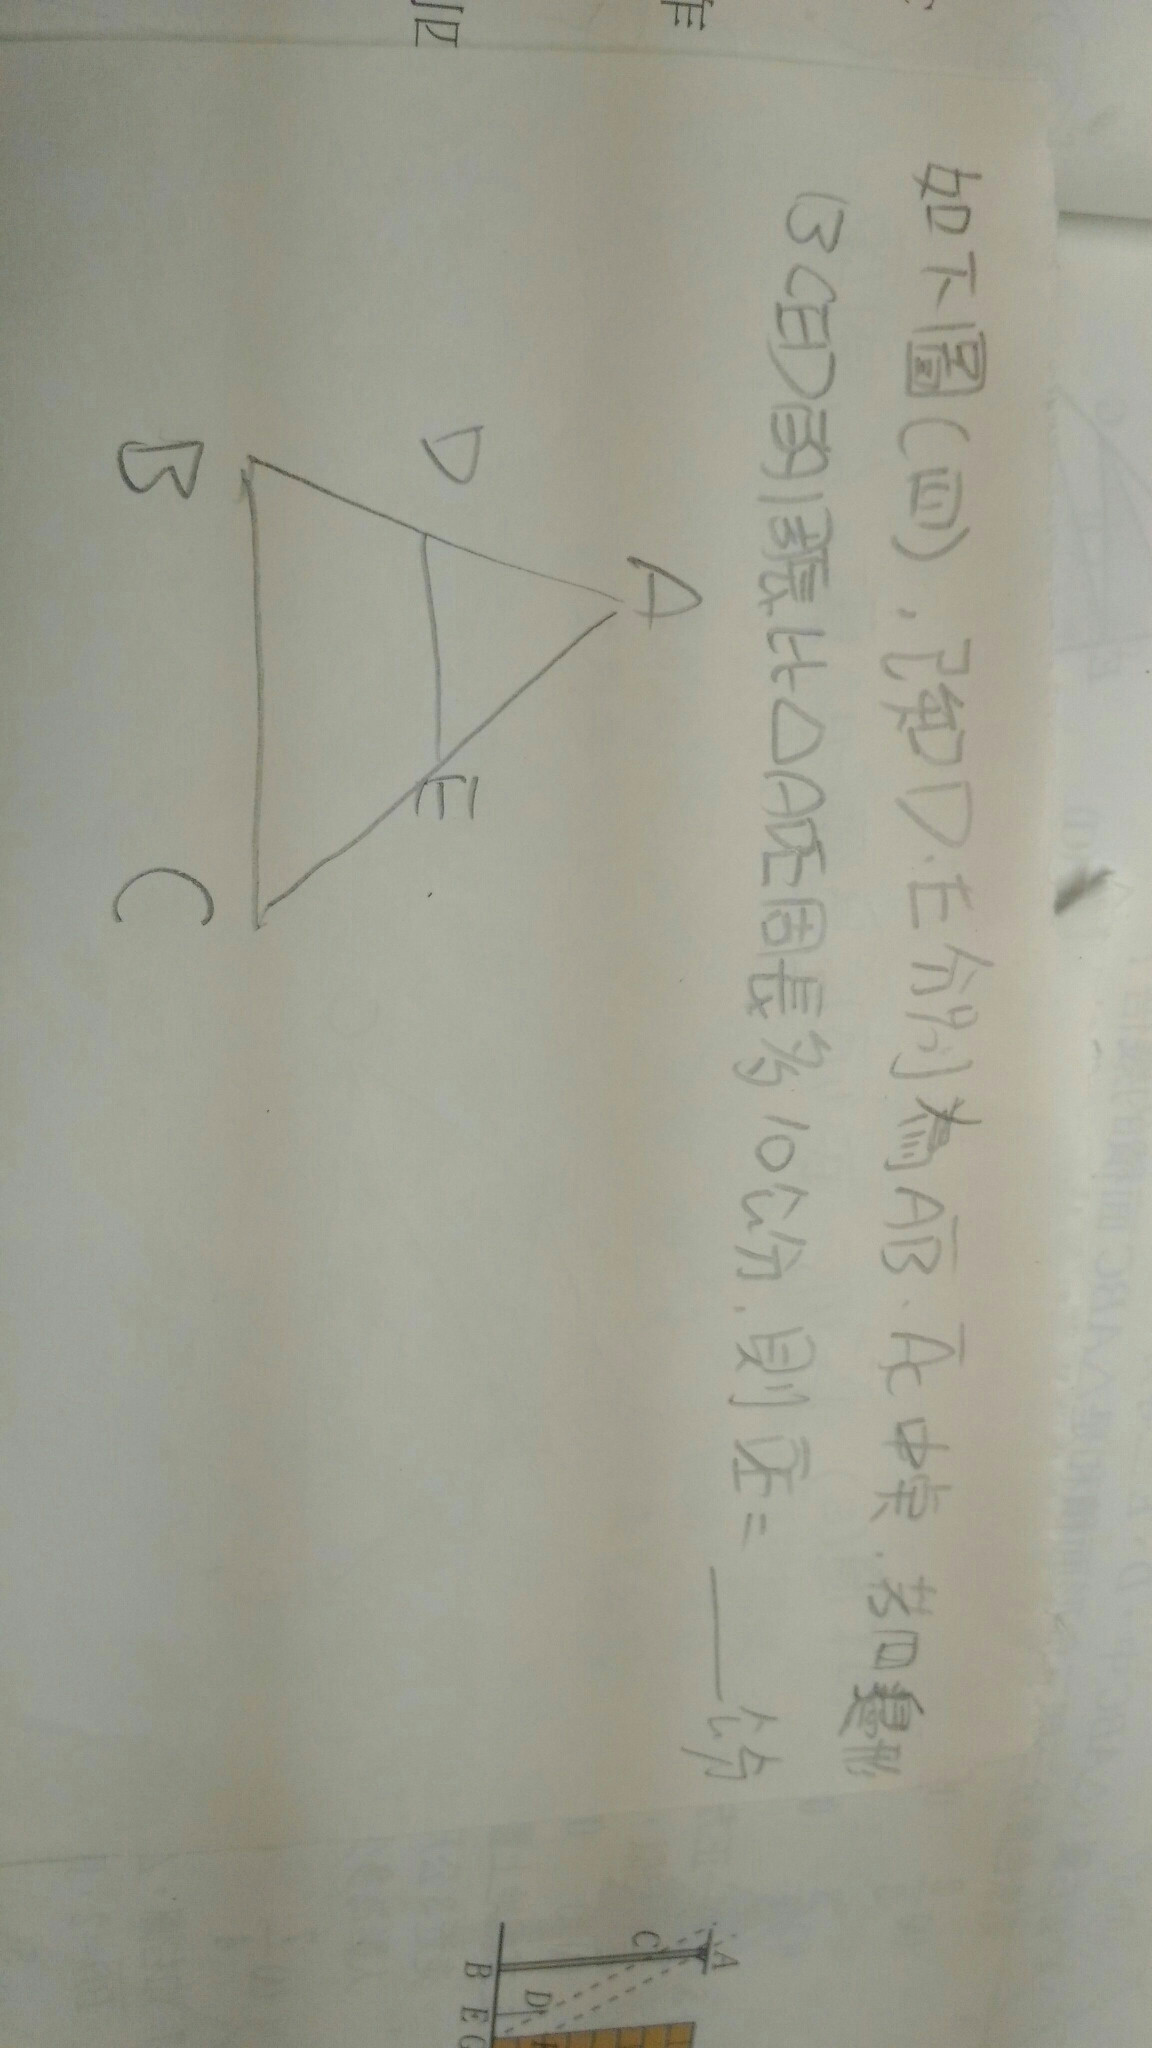 如下圖(四),已知D、E分別為AB、AC中点,若四邊形
BCED的周長比△ADE周長為10公分,則DE=___公分
A
D
E
B
C
A
C
D
B E G